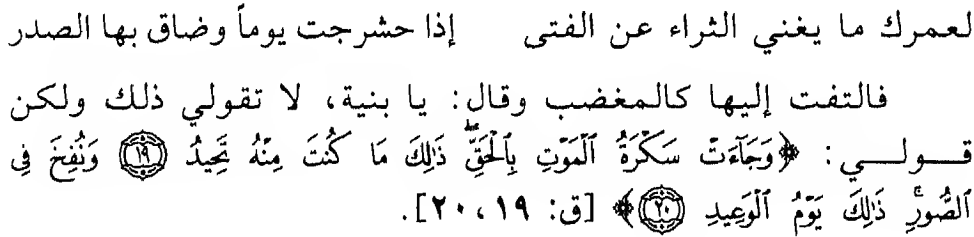 لعمرك ما يغني الثراء عن الفتى إذا حشرجت يوماً وضاق بها الصدر
فالتفت إليها كالمغضب وقال: يا بنية، لا تقولي ذلك ولكن
قولي: ﴿وَجَآءَتْ سَكْرَةُ ٱلْمَوْتِ بِٱلْحَقِّ ۖ ذَٰلِكَ مَا كُنتَ مِنْهُ تَحِيدُ ۝١٩ وَنُفِخَ فِى
ٱلصُّورِ ۚ ذَٰلِكَ يَوْمُ ٱلْوَعِيدِ ۝٢٠﴾ [ق: ١٩، ٢٠].